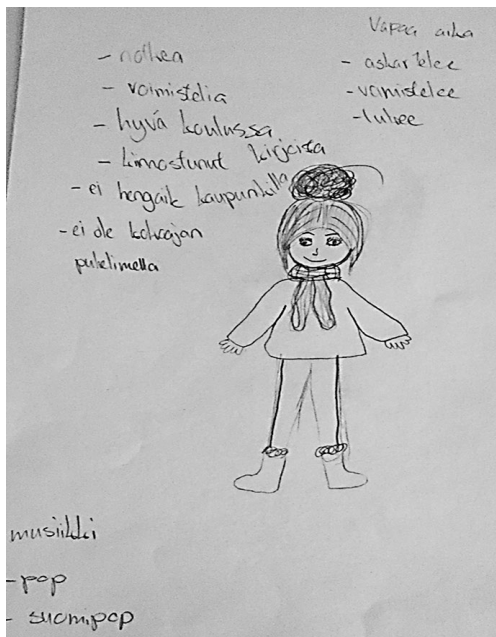 - nolkea
- voimistelia
- hyvä koulussa
- kiinnostunut kirjoista
- ei hengaile kaupungilla
- ei ole kokoajan
puhelimella
Vapaa aika
- askartelee
- voimistelee
- lukee
musiikki
- pop
- suomipop